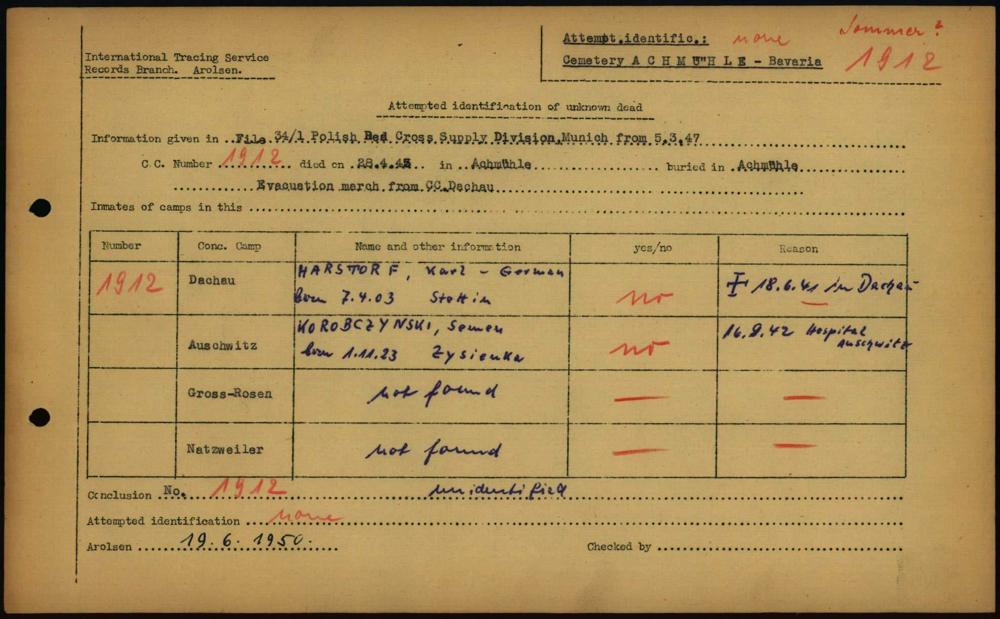 International Tracing Service
Records Branch. Arolsen.
Attempt.identific.: none Sommer?
Cemetery A C H M Ü H L E - Bavaria 1912
Attempted identification of unknown dead
Information given in ..File 34/1 Polish Red Cross Supply Division,Munich from 5.3.47
C.C. Number 1912 died on .28.4.45.. in .Achmühle buried in Achmühle
Evacuation march from CC.Dachau
Inmates of camps in this
Number Conc. Camp Name and other information yes/no Reason
1912 Dachau HARSTORF, Karl - German
born 7.4.03 Stettin no 18.6.41 in Dachau
KOROBCZYNSKI, Semen 16.9.42 Hospital
Auschwitz born 1.11.23 Zysienka no Auschwitz
Gross-Rosen not found — —
Natzweiler not found — —
Conclusion No. 1912 unidentified
Attempted identification none
Arolsen 19. 6. 1950.
Checked by